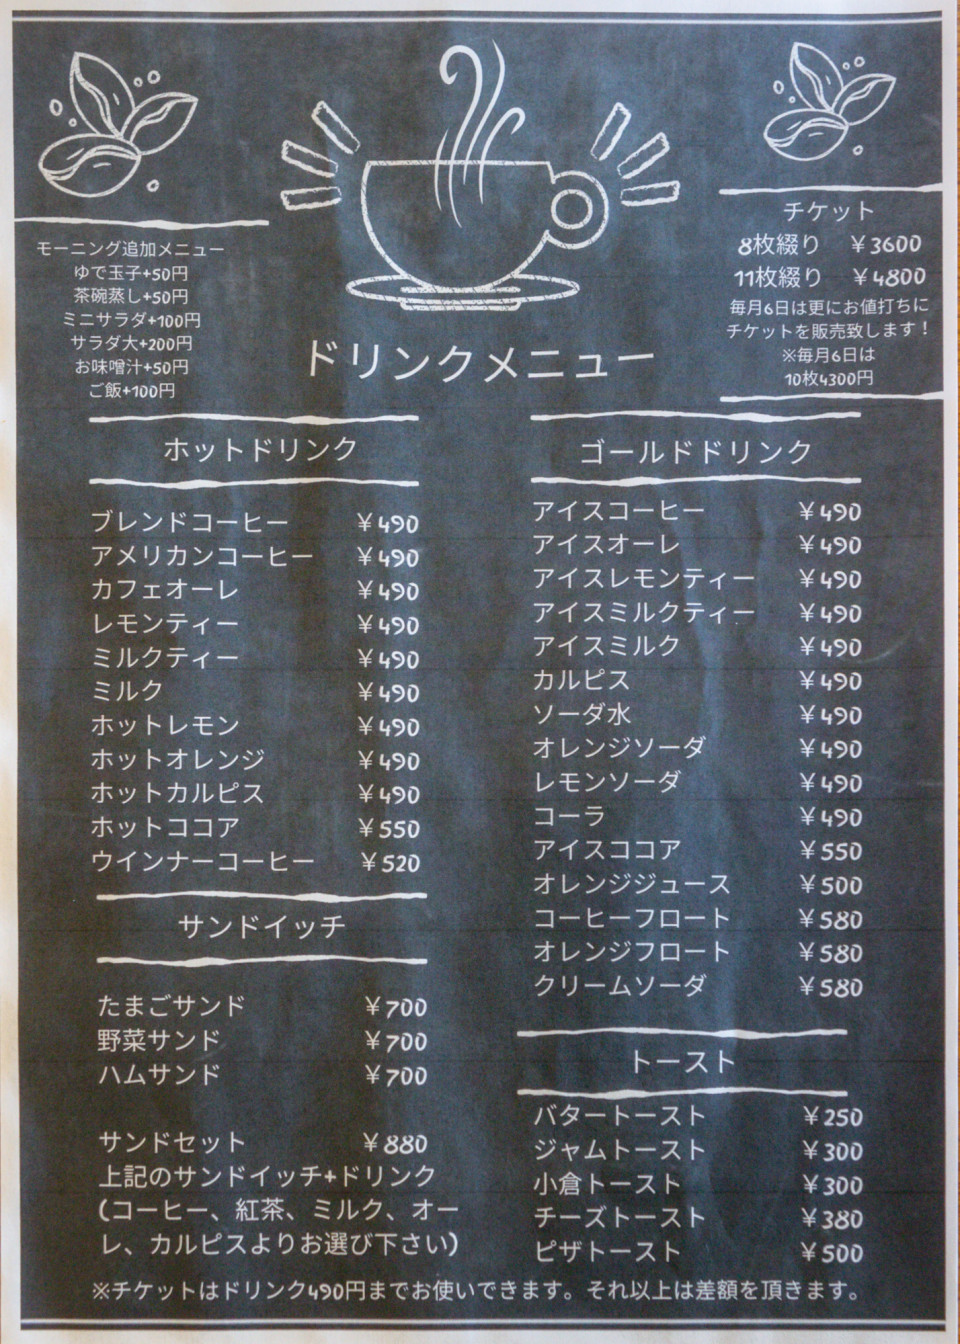 モーニング追加メニュー
ゆで玉子+50円
茶碗蒸し+50円
ミニサラダ+100円
サラダ大+200円
お味噌汁+50円
ご飯+100円
チケット
8枚綴り ￥3600
11枚綴り ￥4800
毎月6日は更にお値打ちに
チケットを販売致します！
※毎月6日は
10枚4300円
ドリンクメニュー
ホットドリンク
ブレンドコーヒー ￥490
アメリカンコーヒー ￥490
カフェオーレ ￥490
レモンティー ￥490
ミルクティー ￥490
ミルク ￥490
ホットレモン ￥490
ホットオレンジ ￥490
ホットカルピス ￥490
ホットココア ￥550
ウインナーコーヒー ￥520
サンドイッチ
たまごサンド ￥700
野菜サンド ￥700
ハムサンド ￥700
サンドセット ￥880
上記のサンドイッチ+ドリンク
(コーヒー、紅茶、ミルク、オー
レ、カルピスよりお選び下さい)
ゴールドドリンク
アイスコーヒー ￥490
アイスオーレ ￥490
アイスレモンティー ￥490
アイスミルクティー ￥490
アイスミルク ￥490
カルピス ￥490
ソーダ水 ￥490
オレンジソーダ ￥490
レモンソーダ ￥490
コーラ ￥490
アイスココア ￥550
オレンジジュース ￥500
コーヒーフロート ￥580
オレンジフロート ￥580
クリームソーダ ￥580
トースト
バタートースト ￥250
ジャムトースト ￥300
小倉トースト ￥300
チーズトースト ￥380
ピザトースト ￥500
※チケットはドリンク490円までお使いできます。それ以上は差額を頂きます。